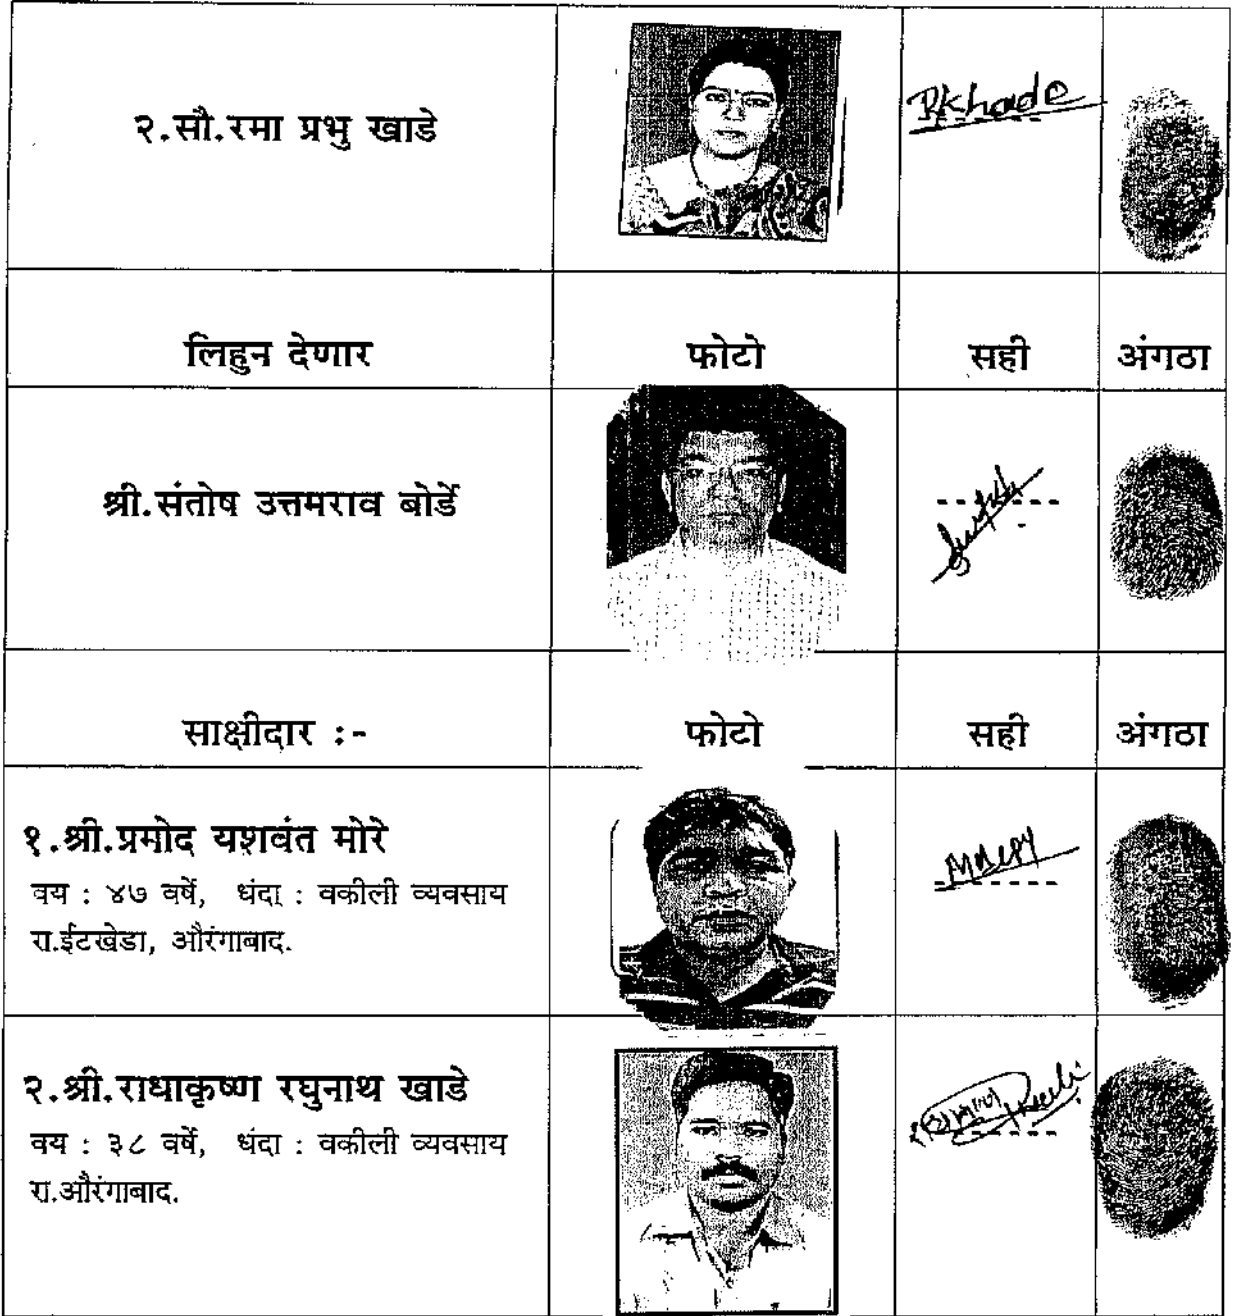 २.सौ.रमा प्रभु खाडे
Rkhade
लिहुन देणार फोटो सही अंगठा
श्री.संतोष उत्तमराव बोर्डे
साक्षीदार :- फोटो सही अंगठा
१.श्री.प्रमोद यशवंत मोरे
वय : ४७ वर्षे, धंदा : वकीली व्यवसाय
रा.ईटखेडा, औरंगाबाद.
२.श्री.राधाकृष्ण रघुनाथ खाडे
वय : ३८ वर्षे, धंदा : वकीली व्यवसाय
रा.औरंगाबाद.